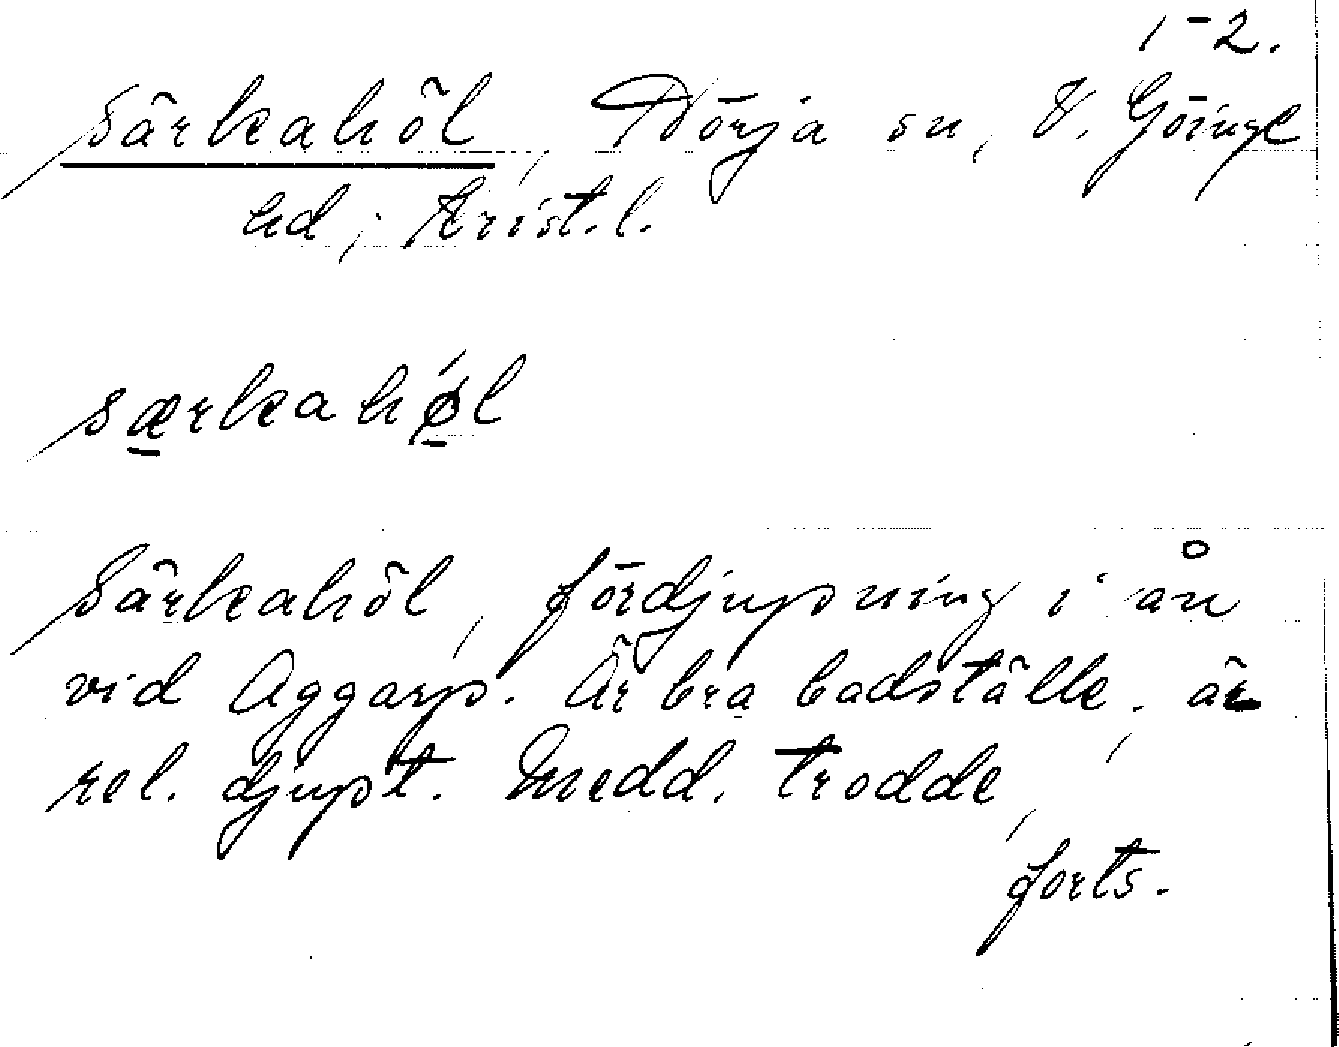 1-2.
Särkahöl, Nörja sn, V. Göinge
hd, Krist.l.
særkahø̀l
Särkahöl, fördjupning i ån
vid Aggarp. Är bra badställe, är
rel. djupt. Medd. trodde,
forts.